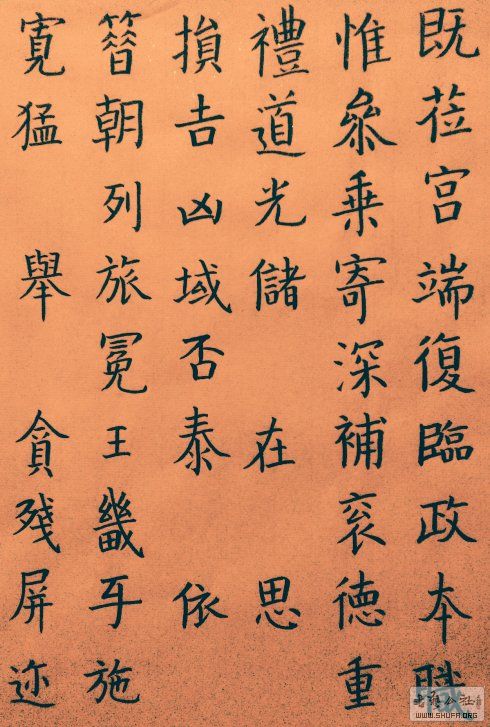 既莅宫端復臨政本職
惟叅乗寄深補衮徳重
禮道光儲 在 思
損吉凶域否泰 依
簮朝列旅冕王畿㸦施
寛猛 舉 貪殘屏迹
WWW.SHUFA.ORG